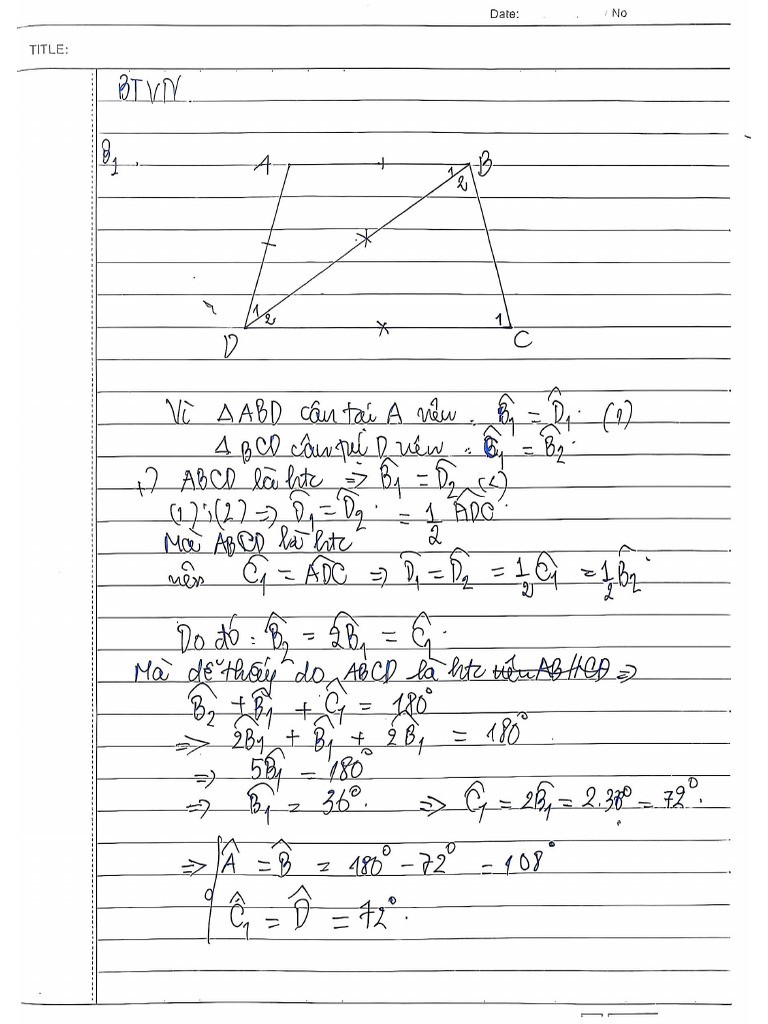 Date: . . / No
TITLE:
BTVN
B1.
A B 1 2
D 1 2 1 C
Vì △ABD cân tại A nên : B̂1 = D̂1. (1)
△BCD cân tại D nên : Ĉ1 = B̂2.
+) ABCD là htc ⇒ B̂1 = D̂2 (2)
(1);(2) ⇒ D̂1 = D̂2 = 1/2 ADC.
Mà ABCD là htc
nên Ĉ1 = ADC ⇒ D̂1 = D̂2 = 1/2 Ĉ1 = 1/2 B̂2.
Do đó : B̂2 = 2B̂1 = Ĉ1.
Mà dễ thấy do ABCD là htc nên AB//CD ⇒
B̂2 + B̂1 + Ĉ1 = 180°
⇒ 2B̂1 + B̂1 + 2B̂1 = 180°
⇒ 5B̂1 = 180°
⇒ B̂1 = 36°. ⇒ Ĉ1 = 2B̂1 = 2.36° = 72°.
⇒ Â = B̂ = 180° - 72° = 108°
Ĉ1 = D̂ = 72°.